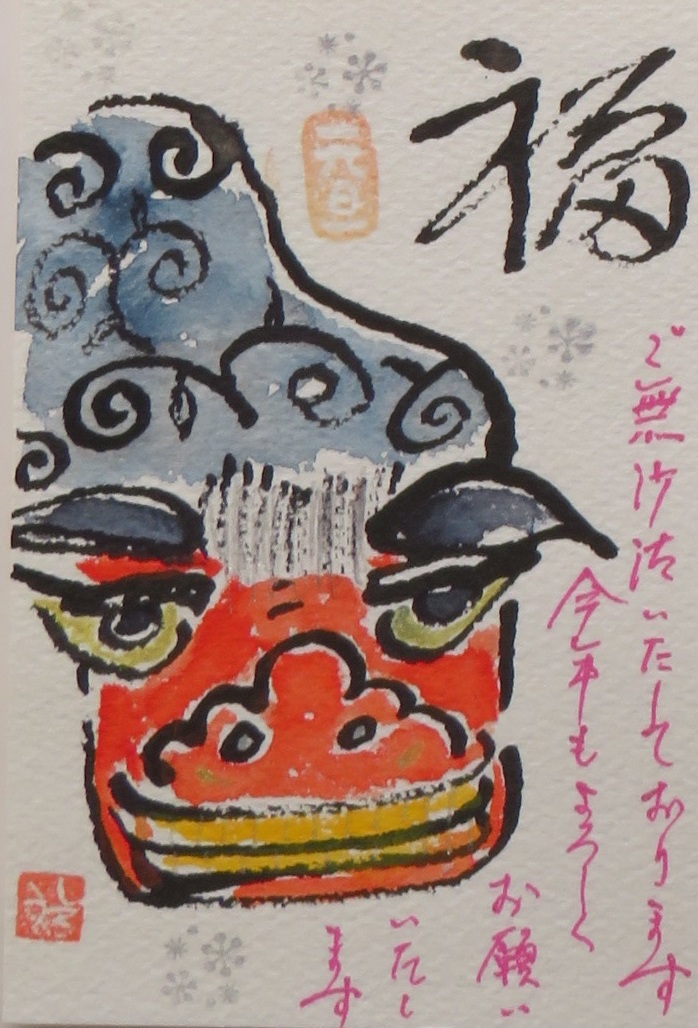 福
元旦
ご無沙汰いたしております
今年もよろしく
お願い
いたし
ます